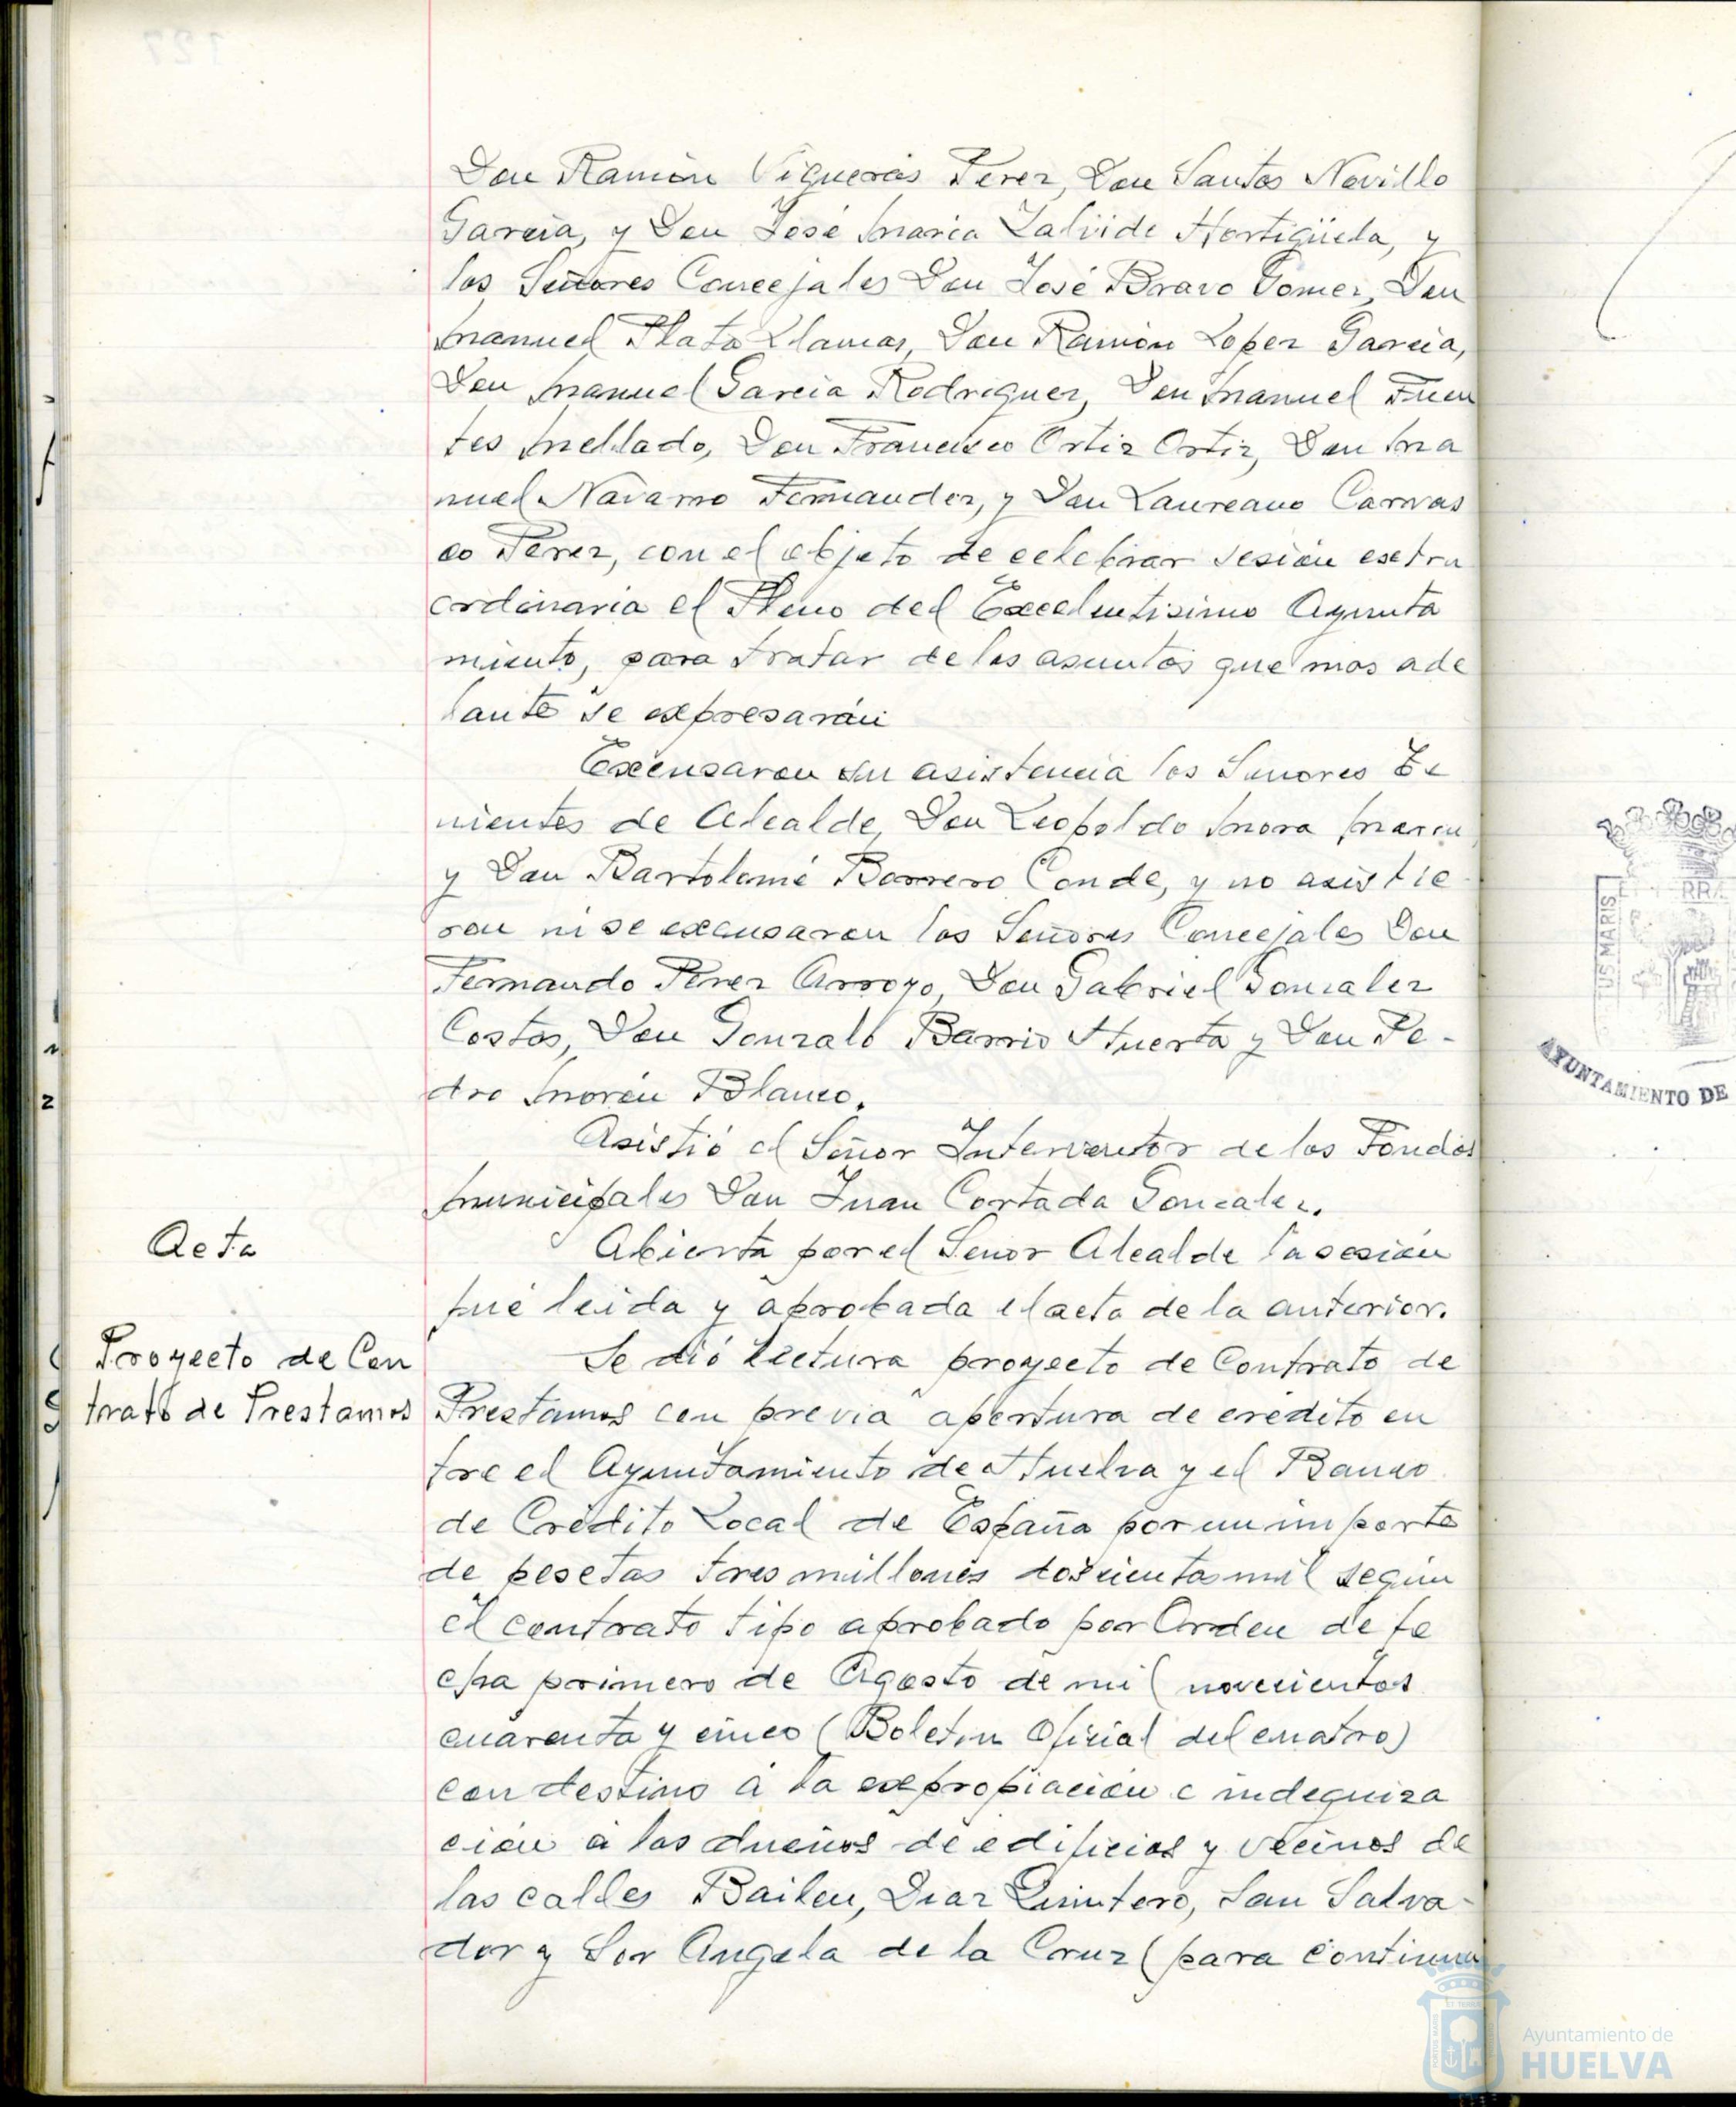 Don Ramón Vigueras Perez, Don Santos Novillo
Garcia, y Don José Maria Zalvide Hortigüela, y
los Señores Concejales Don José Bravo Gomez, Don
Manuel Plata Llamas, Don Ramón Lopez Garcia,
Don Manuel Garcia Rodriguez, Don Manuel Fuen
tes Mellado, Don Francisco Ortiz Ortiz, Don Ma
nuel Navarro Fernandez, y Don Laureano Carras
co Perez, con el objeto de celebrar sesión extra
ordinaria el Pleno del Excelentisimo Ayunta
miento, para tratar de los asuntos que mas ade
lante se expresarán
Excusaron su asistencia los Señores Te
nientes de Alcalde, Don Leopoldo Mora Marin
y Don Bartolomé Borrero Conde, y no asistie
ron ni se excusaron los Señores Concejales Don
Fernando Perez Arroyo, Don Gabriel Gonzalez
Costas, Don Gonzalo Barrio Huerta y Don Pe-
dro Morón Blanco.
Asistió el Señor Interventor de los Fondos
Municipales Don Juan Cortada Gonzalez.
Acta
Abierta por el Señor Alcalde la sesión
fué leida y aprobada el acta de la anterior.
Proyecto de Con
trato de Prestamos
Se dió lectura proyecto de Contrato de
Prestamos con previa apertura de credito en
tre el Ayuntamiento de Huelva y el Banco
de Crédito Local de España por un importe
de pesetas tres millones doscientas mil según
el contrato tipo aprobado por Orden de fe
cha primero de Agosto de mil novecientos
cuarenta y cinco (Boletin Oficial del cuatro)
con destino á la expropiación e indegniza
ción a los dueños de edificios y vecinos de
las calles Bailen, Diaz Quintero, San Salva-
dor y Sor Angela de la Cruz (para continua
TUS MARIS
AYUNTAMIENTO DE
Ayuntamiento de
HUELVA